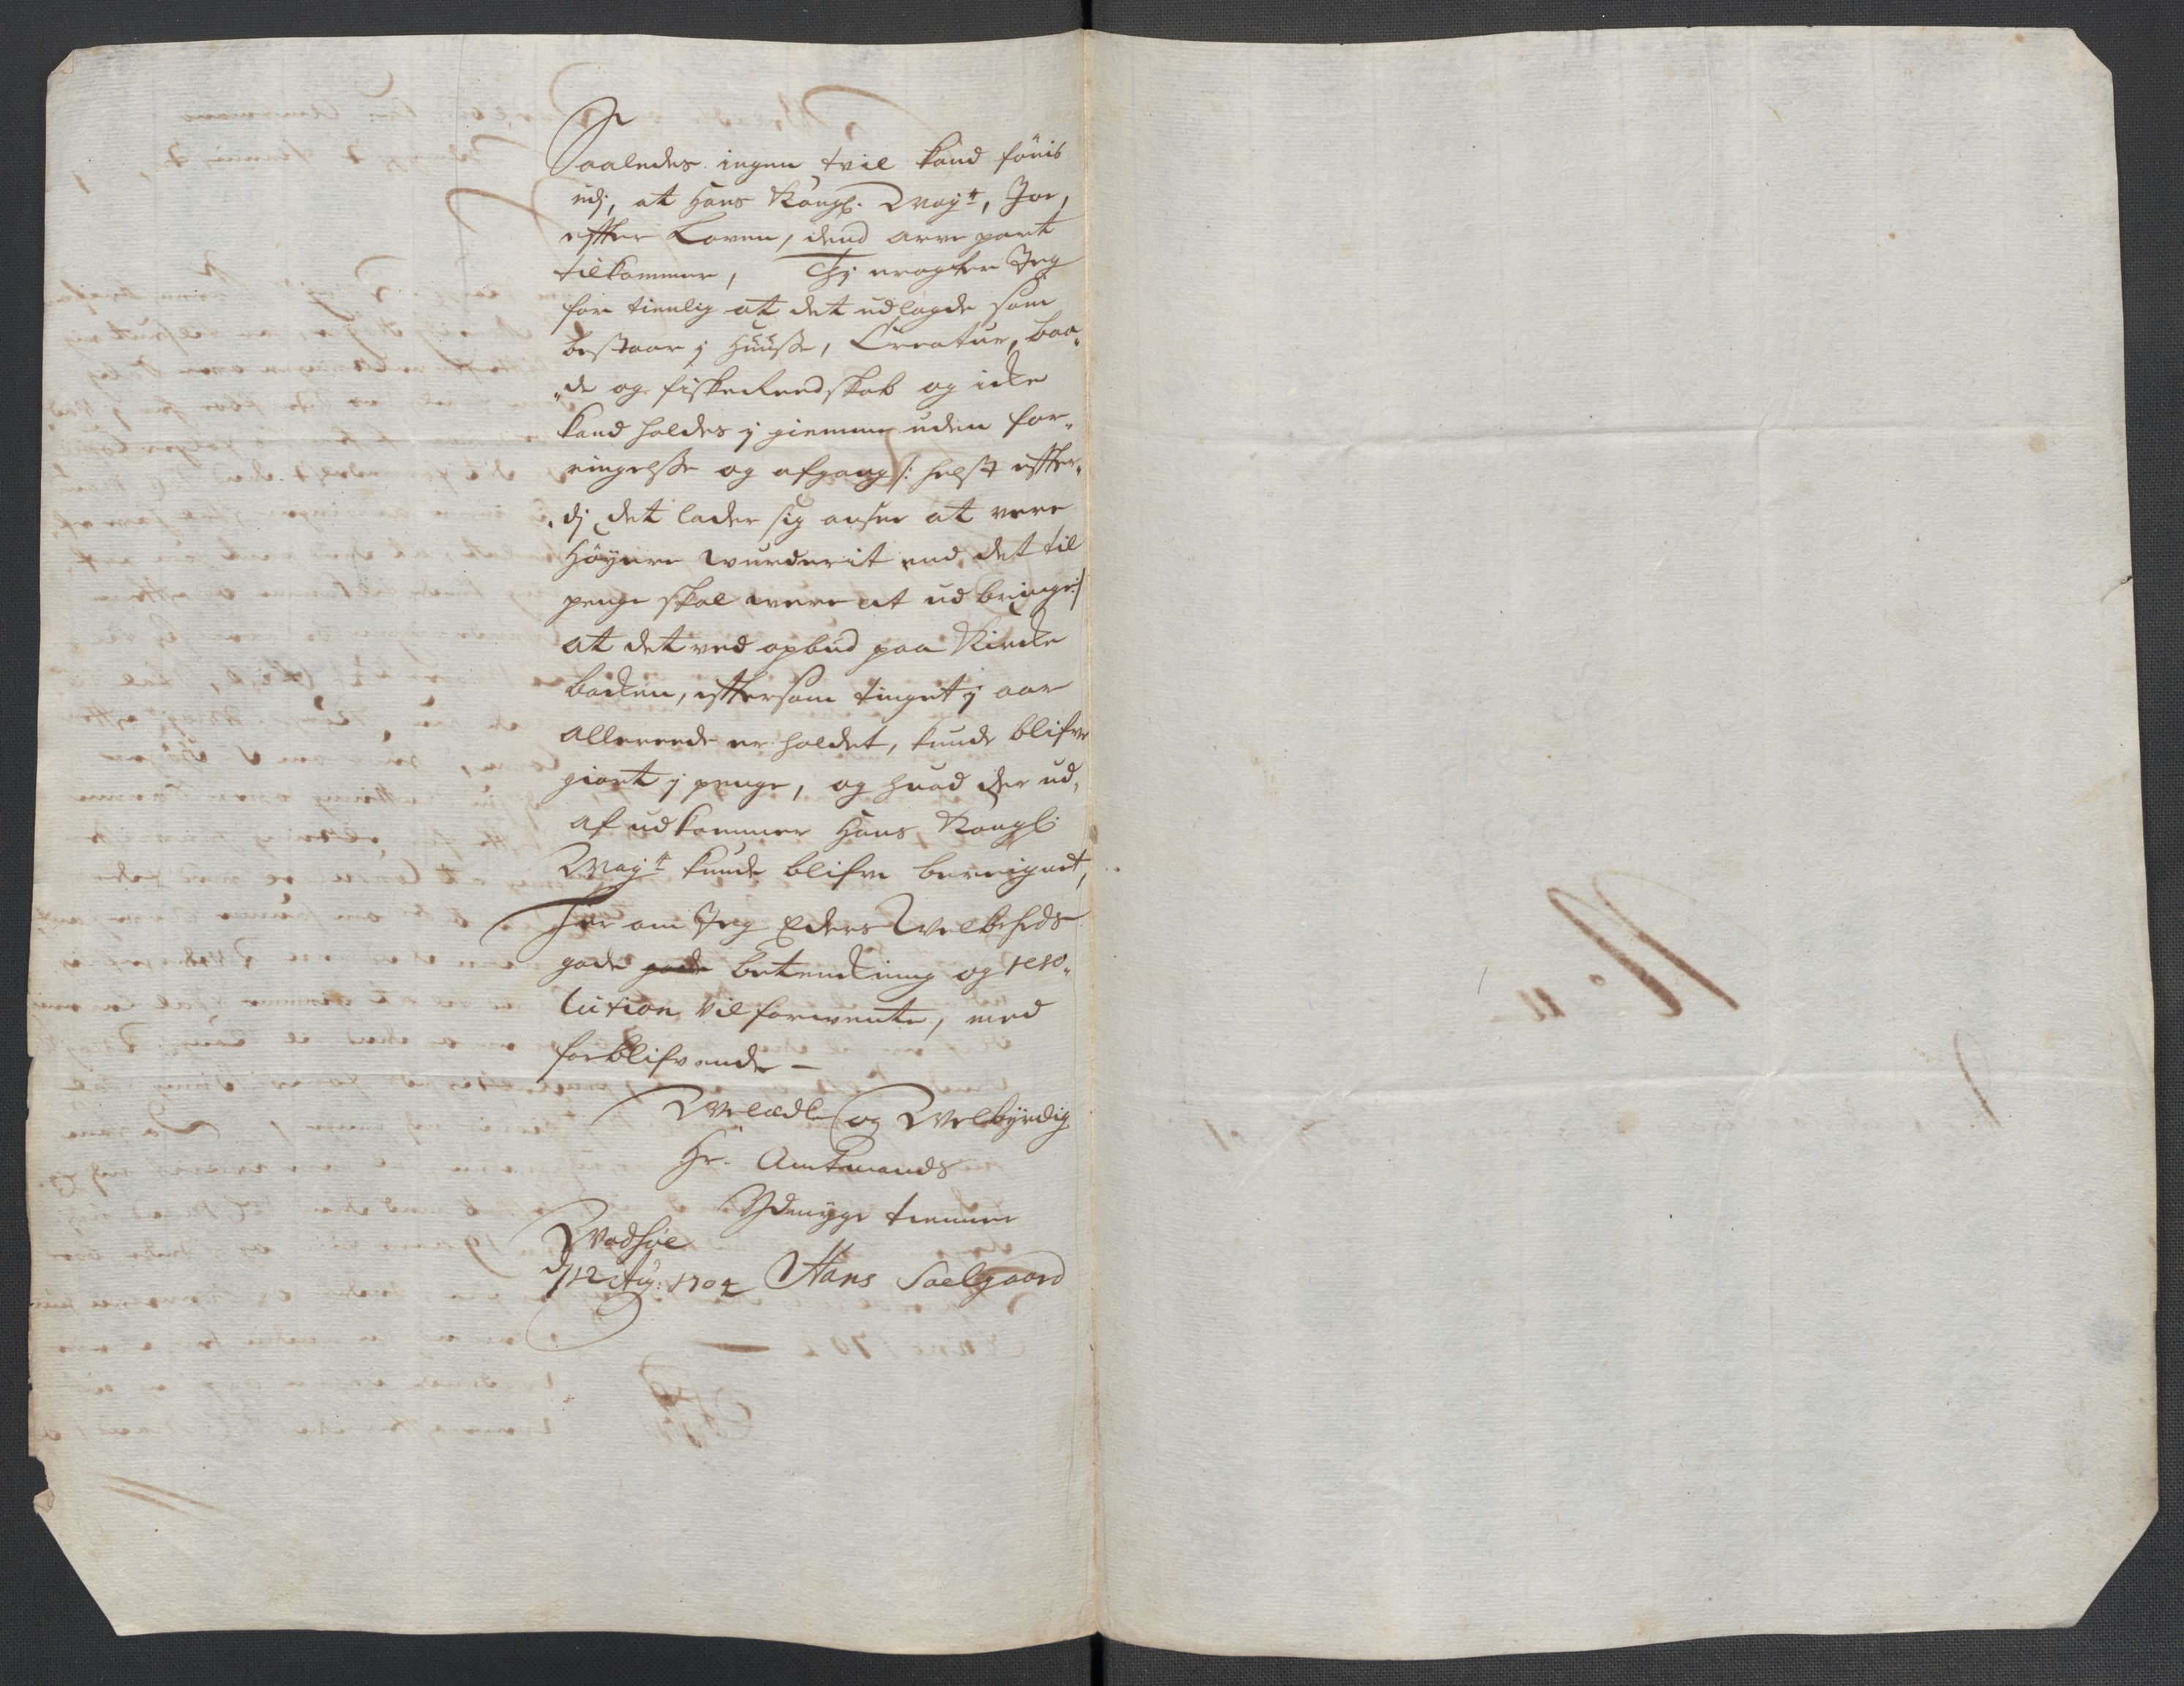 Saaledes ingen tvil kand fönis
udj, at Hans Kongl. Mayt, Jo,
effter Loven, dend arve part
tilkommer, Thj eragter Jeg
for tienlig at det udlagde som
bestaar j Huusse, Creatur, baa„
„de og fiskeReedskab og icke
kand holdes j giemme uden for„
ringelsse og afgang /: helst effter„
„dj det lader sig ansee at vere
Höyere wurderit end det til
penge skal were at udbringe :/
at det ved opbud paa Kircke
backen, efftersom tinget j aar
allereede er holdet, kunde blifve
giort j penge, og huad der ud„
af udkommer Hans Kongl.
Mayt kunde blifve bereignet,
Her om Jeg Eders Welbhds
gode gode betenckning og reso„
lution vil forwente, med
forblifvende —
Welædle og Welbyrdig
Hr. Amtmands
Ydmyge tienner
Wadsöe
d/12 Aug: 1704 Hans Soelgaard